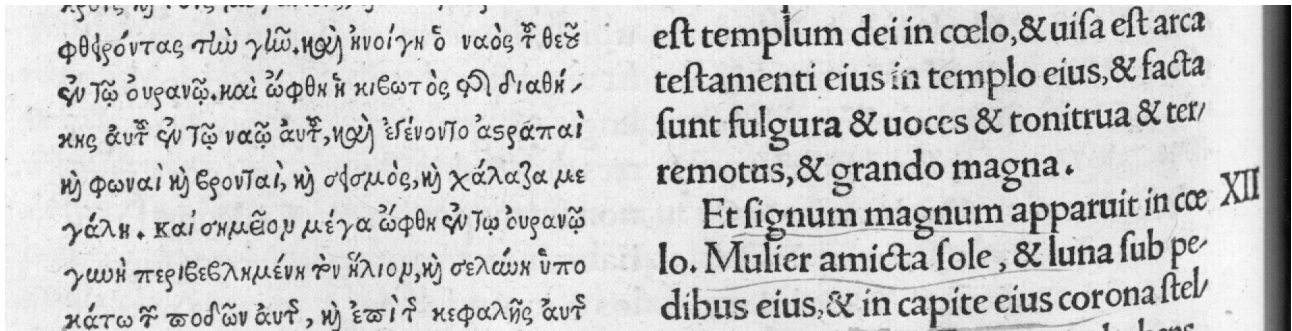 φθειρόντας τὴν γῆν. καὶ ἠνοίγη ὁ ναὸς τοῦ θεοῦ
ἐν τῷ ὀυρανῷ. καὶ ὤφθη ἡ κιβωτὸς τῆς διαθή-
κης ἀυτοῦ ἐν τῷ ναῷ ἀυτοῦ, καὶ ἐγένοντο ἀστράπαὶ
καὶ φωναὶ καὶ βρονταὶ, καὶ σεισμὸς, καὶ χάλαζα με
γάλη. καὶ σημεῖον μέγα ὤφθη ἐν τῷ ὀυρανῷ
γυνὴ περιβεβλημένη τὸν ἥλιον, καὶ σελήνη ὑπο
κάτω τῶν ποδῶν ἀυτῆς, καὶ ἐπὶ τῆς κεφαλῆς ἀυτῆς
est templum dei in cœlo, & uisa est arca
testamenti eius in templo eius, & facta
sunt fulgura & uoces & tonitrua & ter/
remotus, & grando magna.
Et signum magnum apparuit in cœ XII
lo. Mulier amicta sole, & luna sub pe/
dibus eius, & in capite eius corona stel/